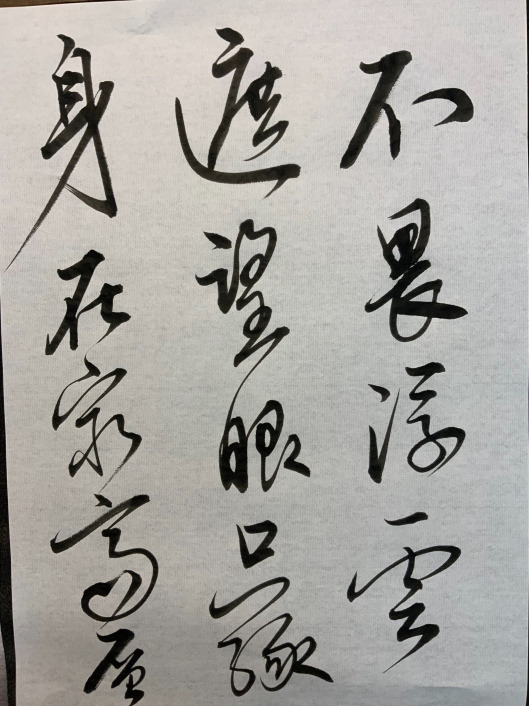 不畏浮雲
遮望眼只緣
身在最高層